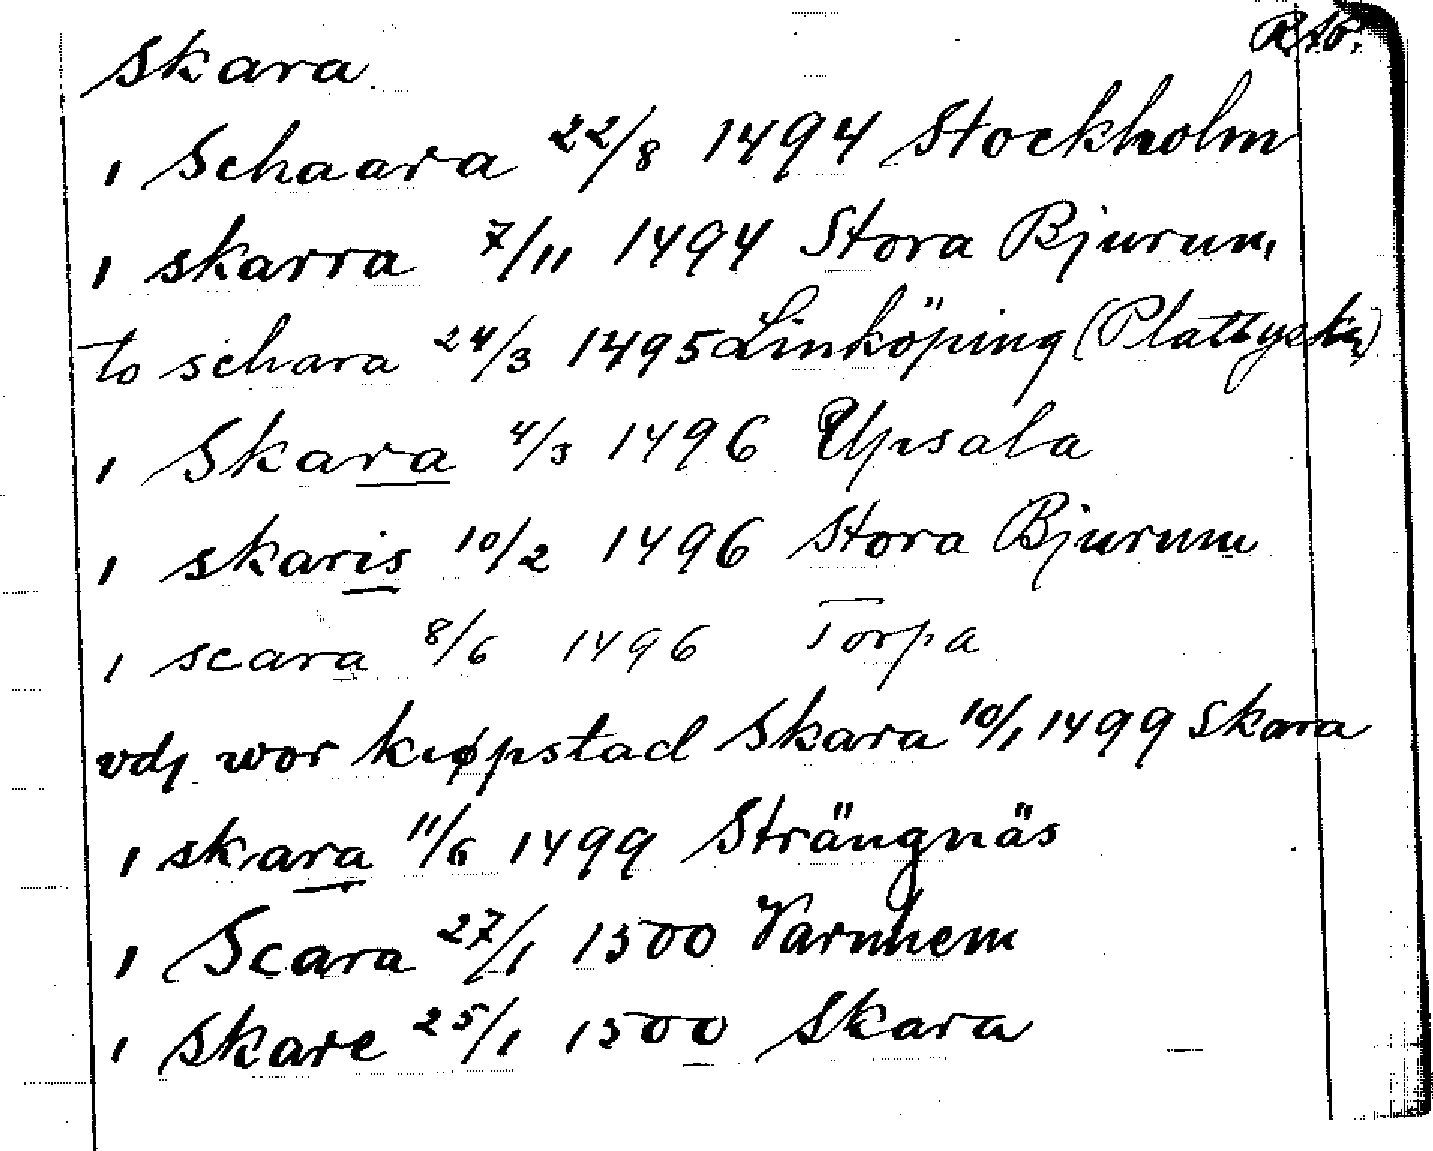 R.Ap.
Skara.
i Schaara 22/8 1494 Stockholm
i skarra 7/11 1494 Stora Bjurum
to schara 24/3 1495 Linköping (Plattyska)
i Skara 4/3 1496 Upsala
i skaris 10/2 1496 Stora Bjurum
i scara 8/6 1496 Torpa
vdj wor kiøpstad Skara 10/1 1499 Skara
i skara 11/6 1499 Strängnäs
i Scara 27/1 1500 Varnhem
i Skare 25/1 1500 Skara